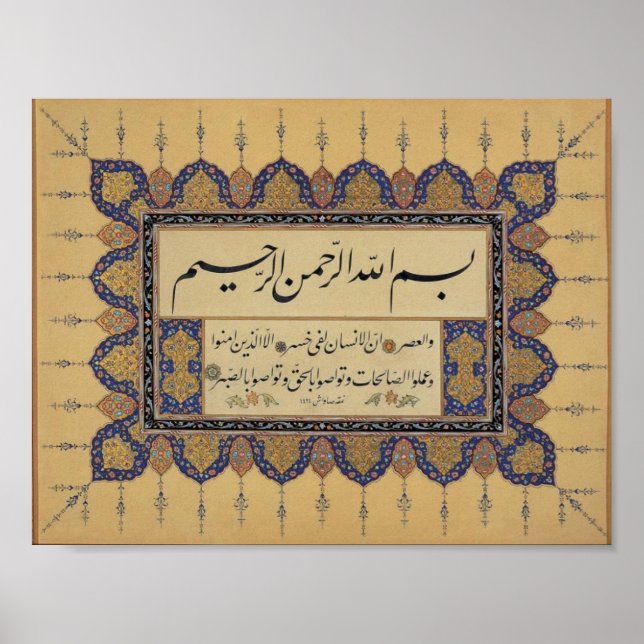 بسم الله الرّحمن الرّحيم
والعصر انّ الانسان لفى خسر الّا الّذين امنوا
وعملوا الصّالحات وتواصوا بالحقّ وتواصوا بالصّبر